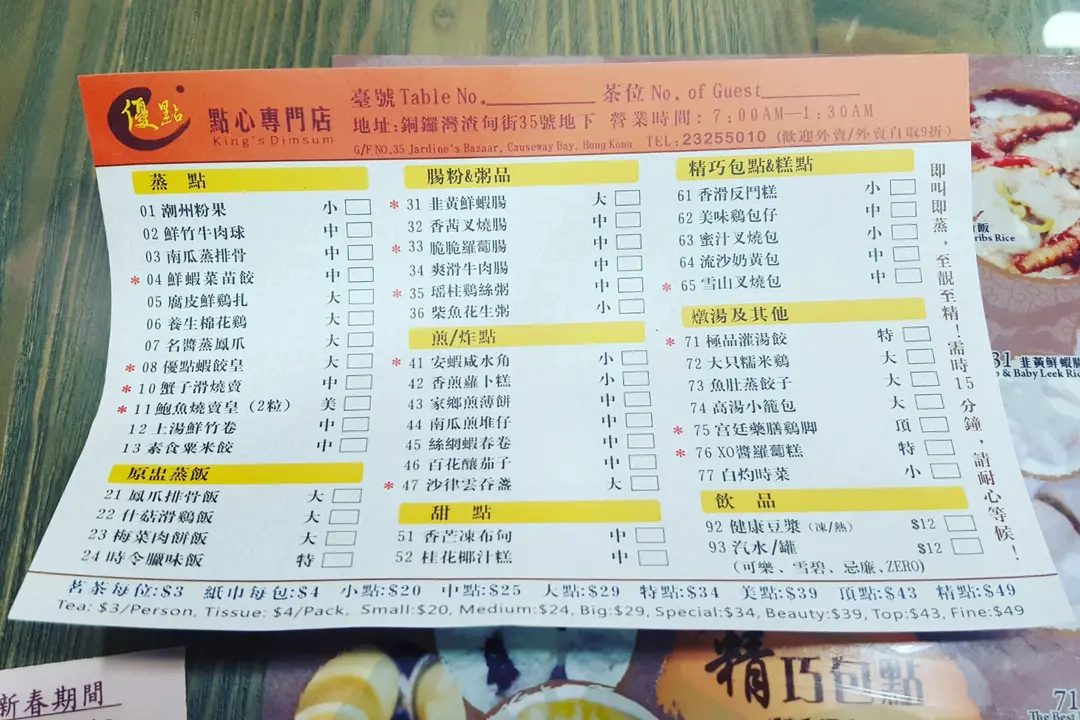 優點
點心專門店
King's Dimsum
臺號 Table No. 茶位 No. of Guest
地址:銅鑼灣渣甸街35號地下 營業時間: 7:00AM—1:30AM
G/F NO.35 Jardine's Bazaar, Causeway Bay, Hong Kong TEL:23255010 (歡迎外賣/外賣自取9折)
蒸 點
01 潮州粉果 小
02 鮮竹牛肉球 中
03 南瓜蒸排骨 中
* 04 鮮蝦菜苗餃 中
05 腐皮鮮鷄扎 大
06 養生棉花鷄 大
07 名醬蒸鳳爪 大
* 08 優點蝦餃皇 大
* 10 蟹子滑燒賣 中
* 11 鮑魚燒賣皇 (2粒) 美
12 上湯鮮竹卷 中
13 素食粟米餃 中
原盅蒸飯
21 鳳爪排骨飯 大
22 什菇滑鷄飯 大
23 梅菜肉餅飯 大
24 時令臘味飯 特
腸粉&粥品
* 31 韭黄鮮蝦腸 大
32 香茜叉燒腸 中
* 33 脆脆羅蔔腸 中
34 爽滑牛肉腸 中
* 35 瑶柱鷄絲粥 中
36 柴魚花生粥 小
煎/炸點
* 41 安蝦咸水角 小
42 香煎蘿卜糕 小
43 家鄉煎薄餅 中
44 南瓜煎堆仔 中
45 絲網蝦春卷 中
46 百花釀茄子 中
* 47 沙律雲吞盞 大
甜 點
51 香芒凍布甸 中
52 桂花椰汁糕 中
精巧包點&糕點
61 香滑反鬥糕 小
62 美味鷄包仔 中
63 蜜汁叉燒包 小
64 流沙奶黄包 中
* 65 雪山叉燒包 中
燉湯及其他
* 71 極品灌湯餃 特
72 大只糯米鷄 大
73 魚肚蒸餃子 大
74 高湯小籠包 大
* 75 宫廷藥膳鷄脚 頂
* 76 XO醬羅蔔糕 特
77 白灼時菜 小
飲 品
92 健康豆漿 (凍/熱) $12
93 汽水/罐 $12
(可樂、雪碧、忌廉、ZERO)
即叫即蒸，至靚至精！需時15分鐘，請耐心等候！
茗茶每位:$3 紙巾每包:$4 小點:$20 中點:$25 大點:$29 特點:$34 美點:$39 頂點:$43 精點:$49
Tea: $3/Person, Tissue: $4/Pack, Small:$20, Medium:$24, Big:$29, Special:$34, Beauty:$39, Top:$43, Fine:$49
飯
ribs Rice
31 韭黄鮮蝦腸
& Baby Leek Ric
新春期間
精巧包點
71
The Best